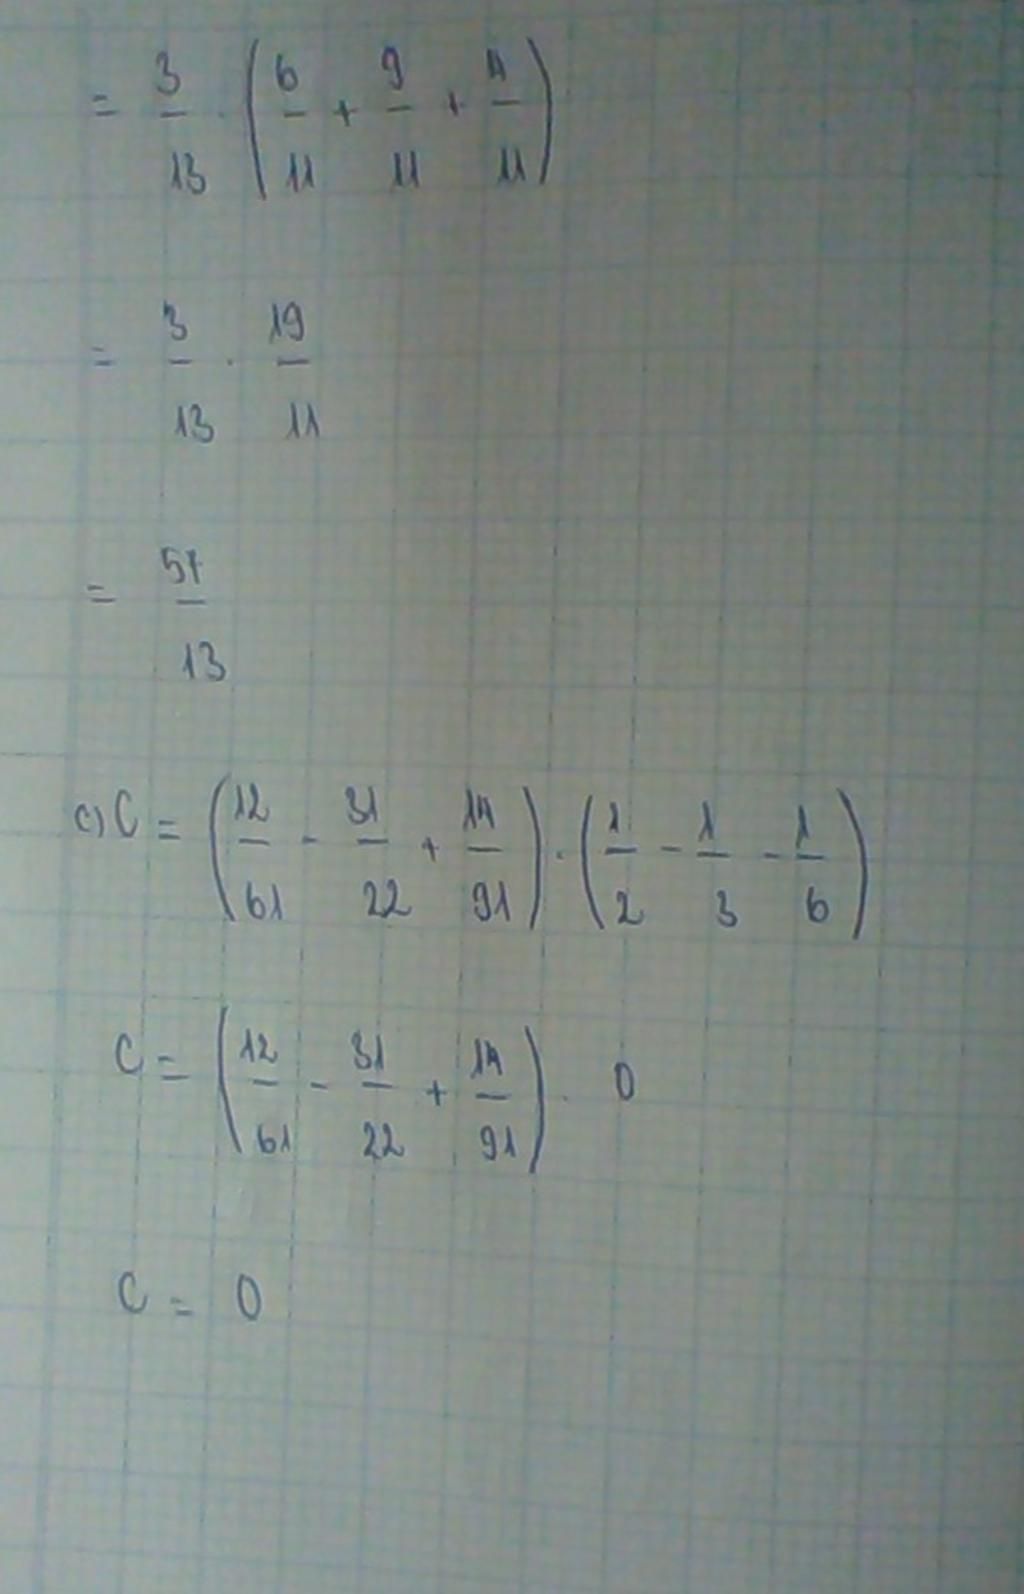 = 3/13 . (6/11 + 9/11 + 4/11)
= 3/13 . 19/11
= 57/13
c) C = (12/61 - 31/22 + 14/91) . (1/2 - 1/3 - 1/6)
C = (12/61 - 31/22 + 14/91) . 0
C = 0